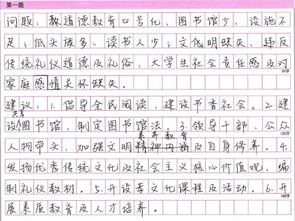 第一题
问题：教道德教育口号化，图书馆少，设施不
足；低头族多，读书人少；文化明缺失，违反
传统美德及礼俗，大学生社会责任感及对
家庭感情关怀缺失。
建议：1.倡导全民阅读，建设书香社会。2.建
设图书馆，制定图书馆法。3.领导干部、公众
人物带头，加强文明素养教育及自身修养。4.
发扬优秀传统文化及社会主义核心价值观，编
制礼仪教材。5.开设孝文化课程及活动。6.开
展素质教育及人才培养。